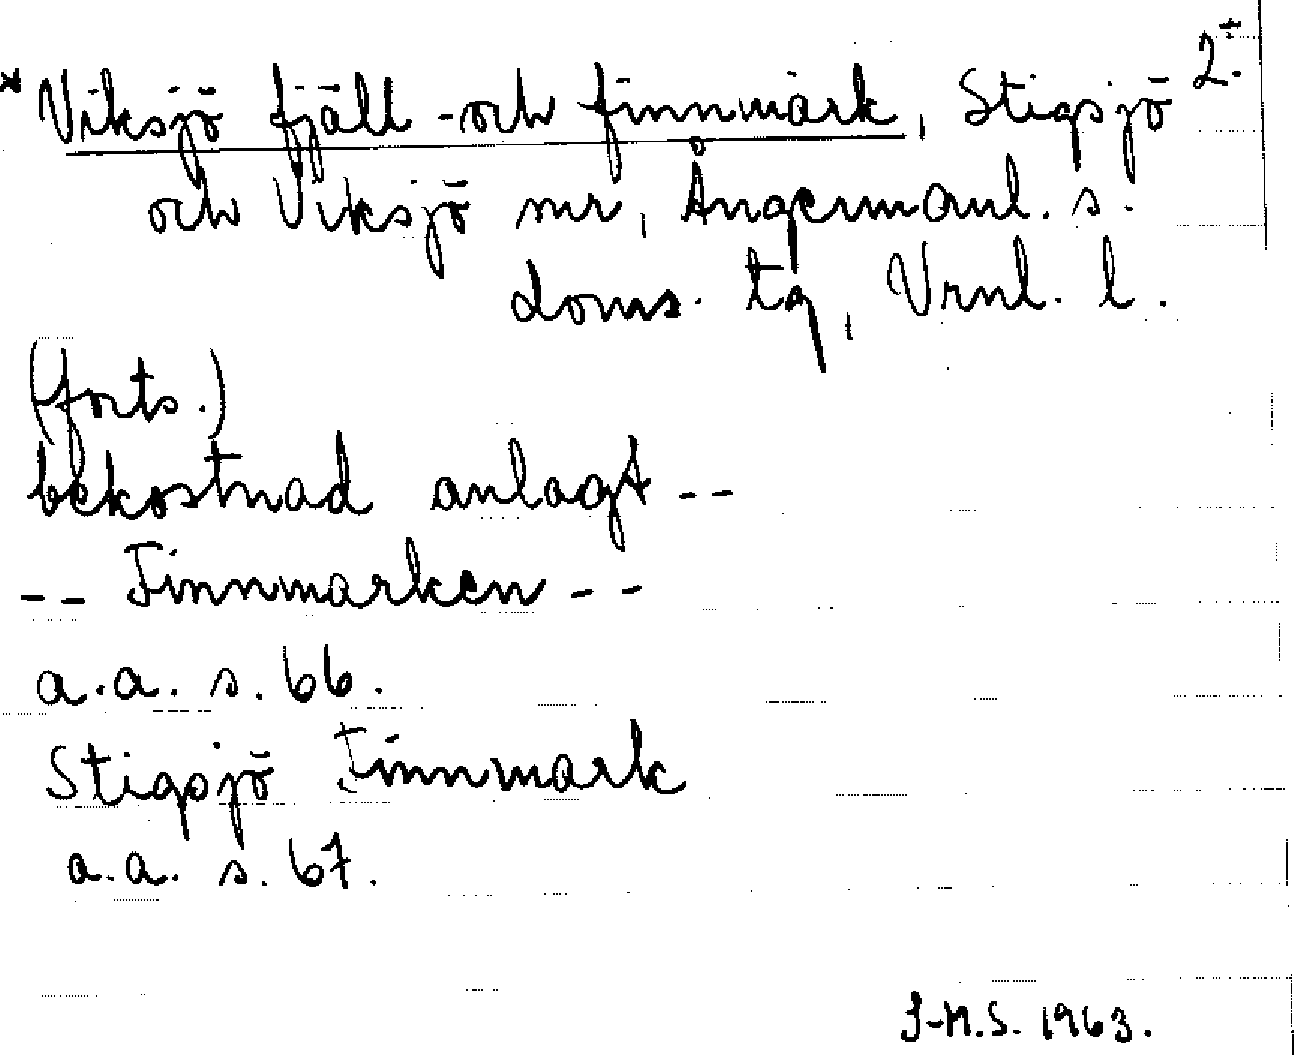 * Viksjö fjäll- och finnmark, Stigsjö 2.
och Viksjö snr, Ångermanl. s.
doms. tg, Vrnl. l.
(forts.)
bekostnad anlagt --
-- Finnmarken --
a.a. s. 66.
Stigsjö Finnmark
a.a. s. 67.
J-M.S. 1963.